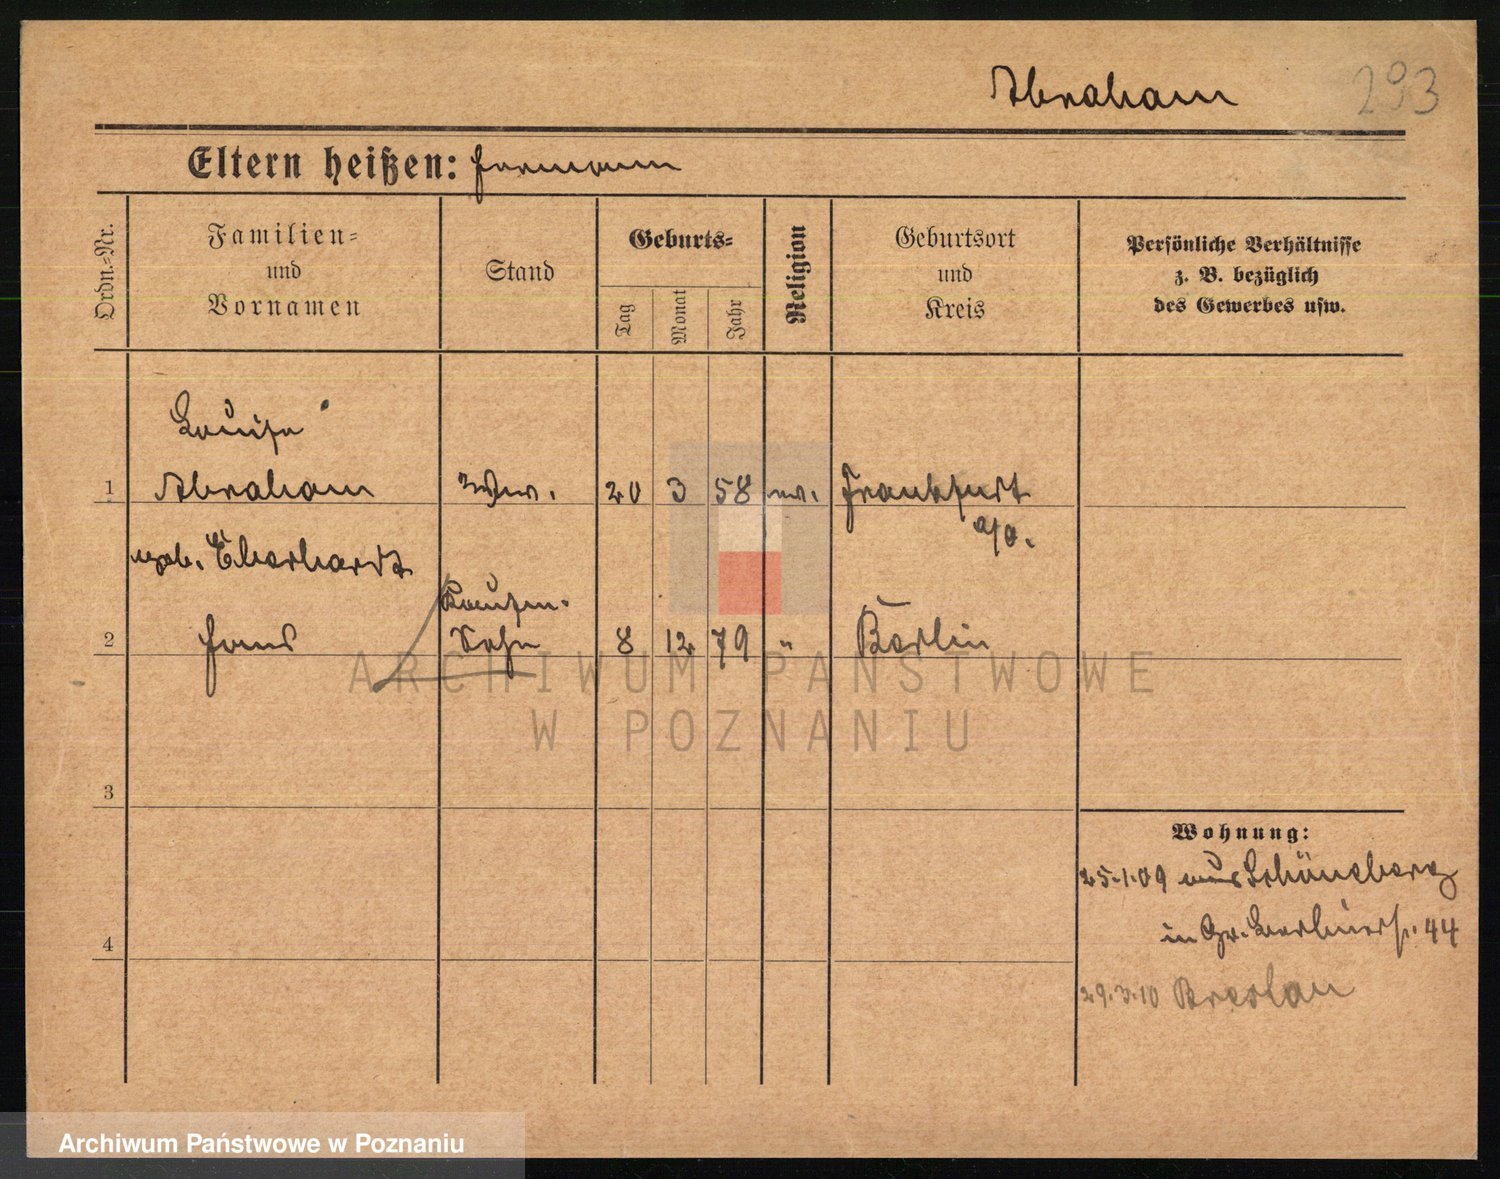 Abraham 293
Eltern heißen: Hermann
Ordn.=Nr.
Familien=
und
Vornamen
Stand
Geburts=
Tag
Monat
Jahr
Religion
Geburtsort
und
Kreis
Persönliche Verhältnisse
z. B. bezüglich
des Gewerbes usw.
Louise
1 Abraham Wwe. 20 3 58 ev. Frankfurt
a/O.
geb. Eberhardt
2 Hans 8 12 79 " Berlin
3
4
Wohnung:
25.1.09 aus Schöneberg
in Gr. Berlinerst. 44
29.3.10 Breslau
ARCHIWUM PAŃSTWOWE
W POZNANIU
Archiwum Państwowe w Poznaniu